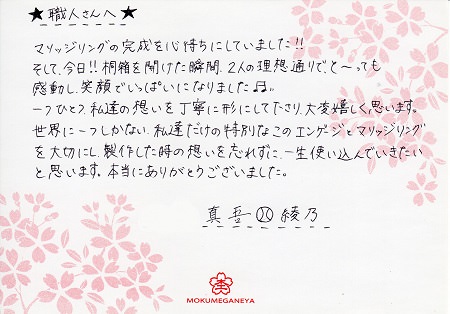 ★職人さんへ★
マリッジリングの完成を心待ちにしていました!!
そして、今日!!桐箱を開けた瞬間、2人の理想通りでと〜っても
感動し、笑顔でいっぱいになりました♫。
一つひとつ、私達の想いを丁寧に形にして下さり、大変嬉しく思います。
世界に一つしかない、私達だけの特別なこのエンゲージとマリッジリング
を大切にし、製作した時の想いを忘れずに、一生使い込んでいきたい
と思います。本当にありがとうございました。
真吾 綾乃
MOKUMEGANEYA